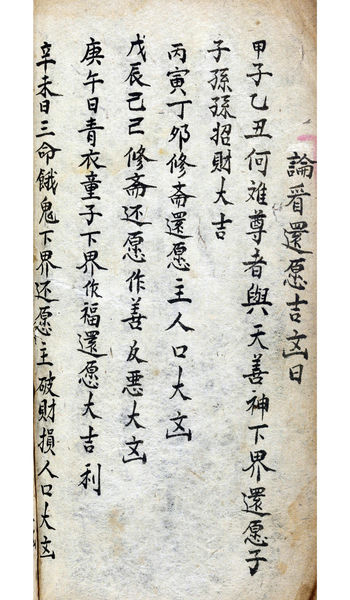 論看還愿吉凶日
甲子乙丑何难尊者與天善神下界還愿子
子孫孫招財大吉
丙寅丁卯修斋還愿主人口大凶
戊辰己巳修斋还愿作善反恶大凶
庚午日青衣童子下界作福還愿大吉利
辛未日三命餓鬼下界还愿主破財損人口大凶